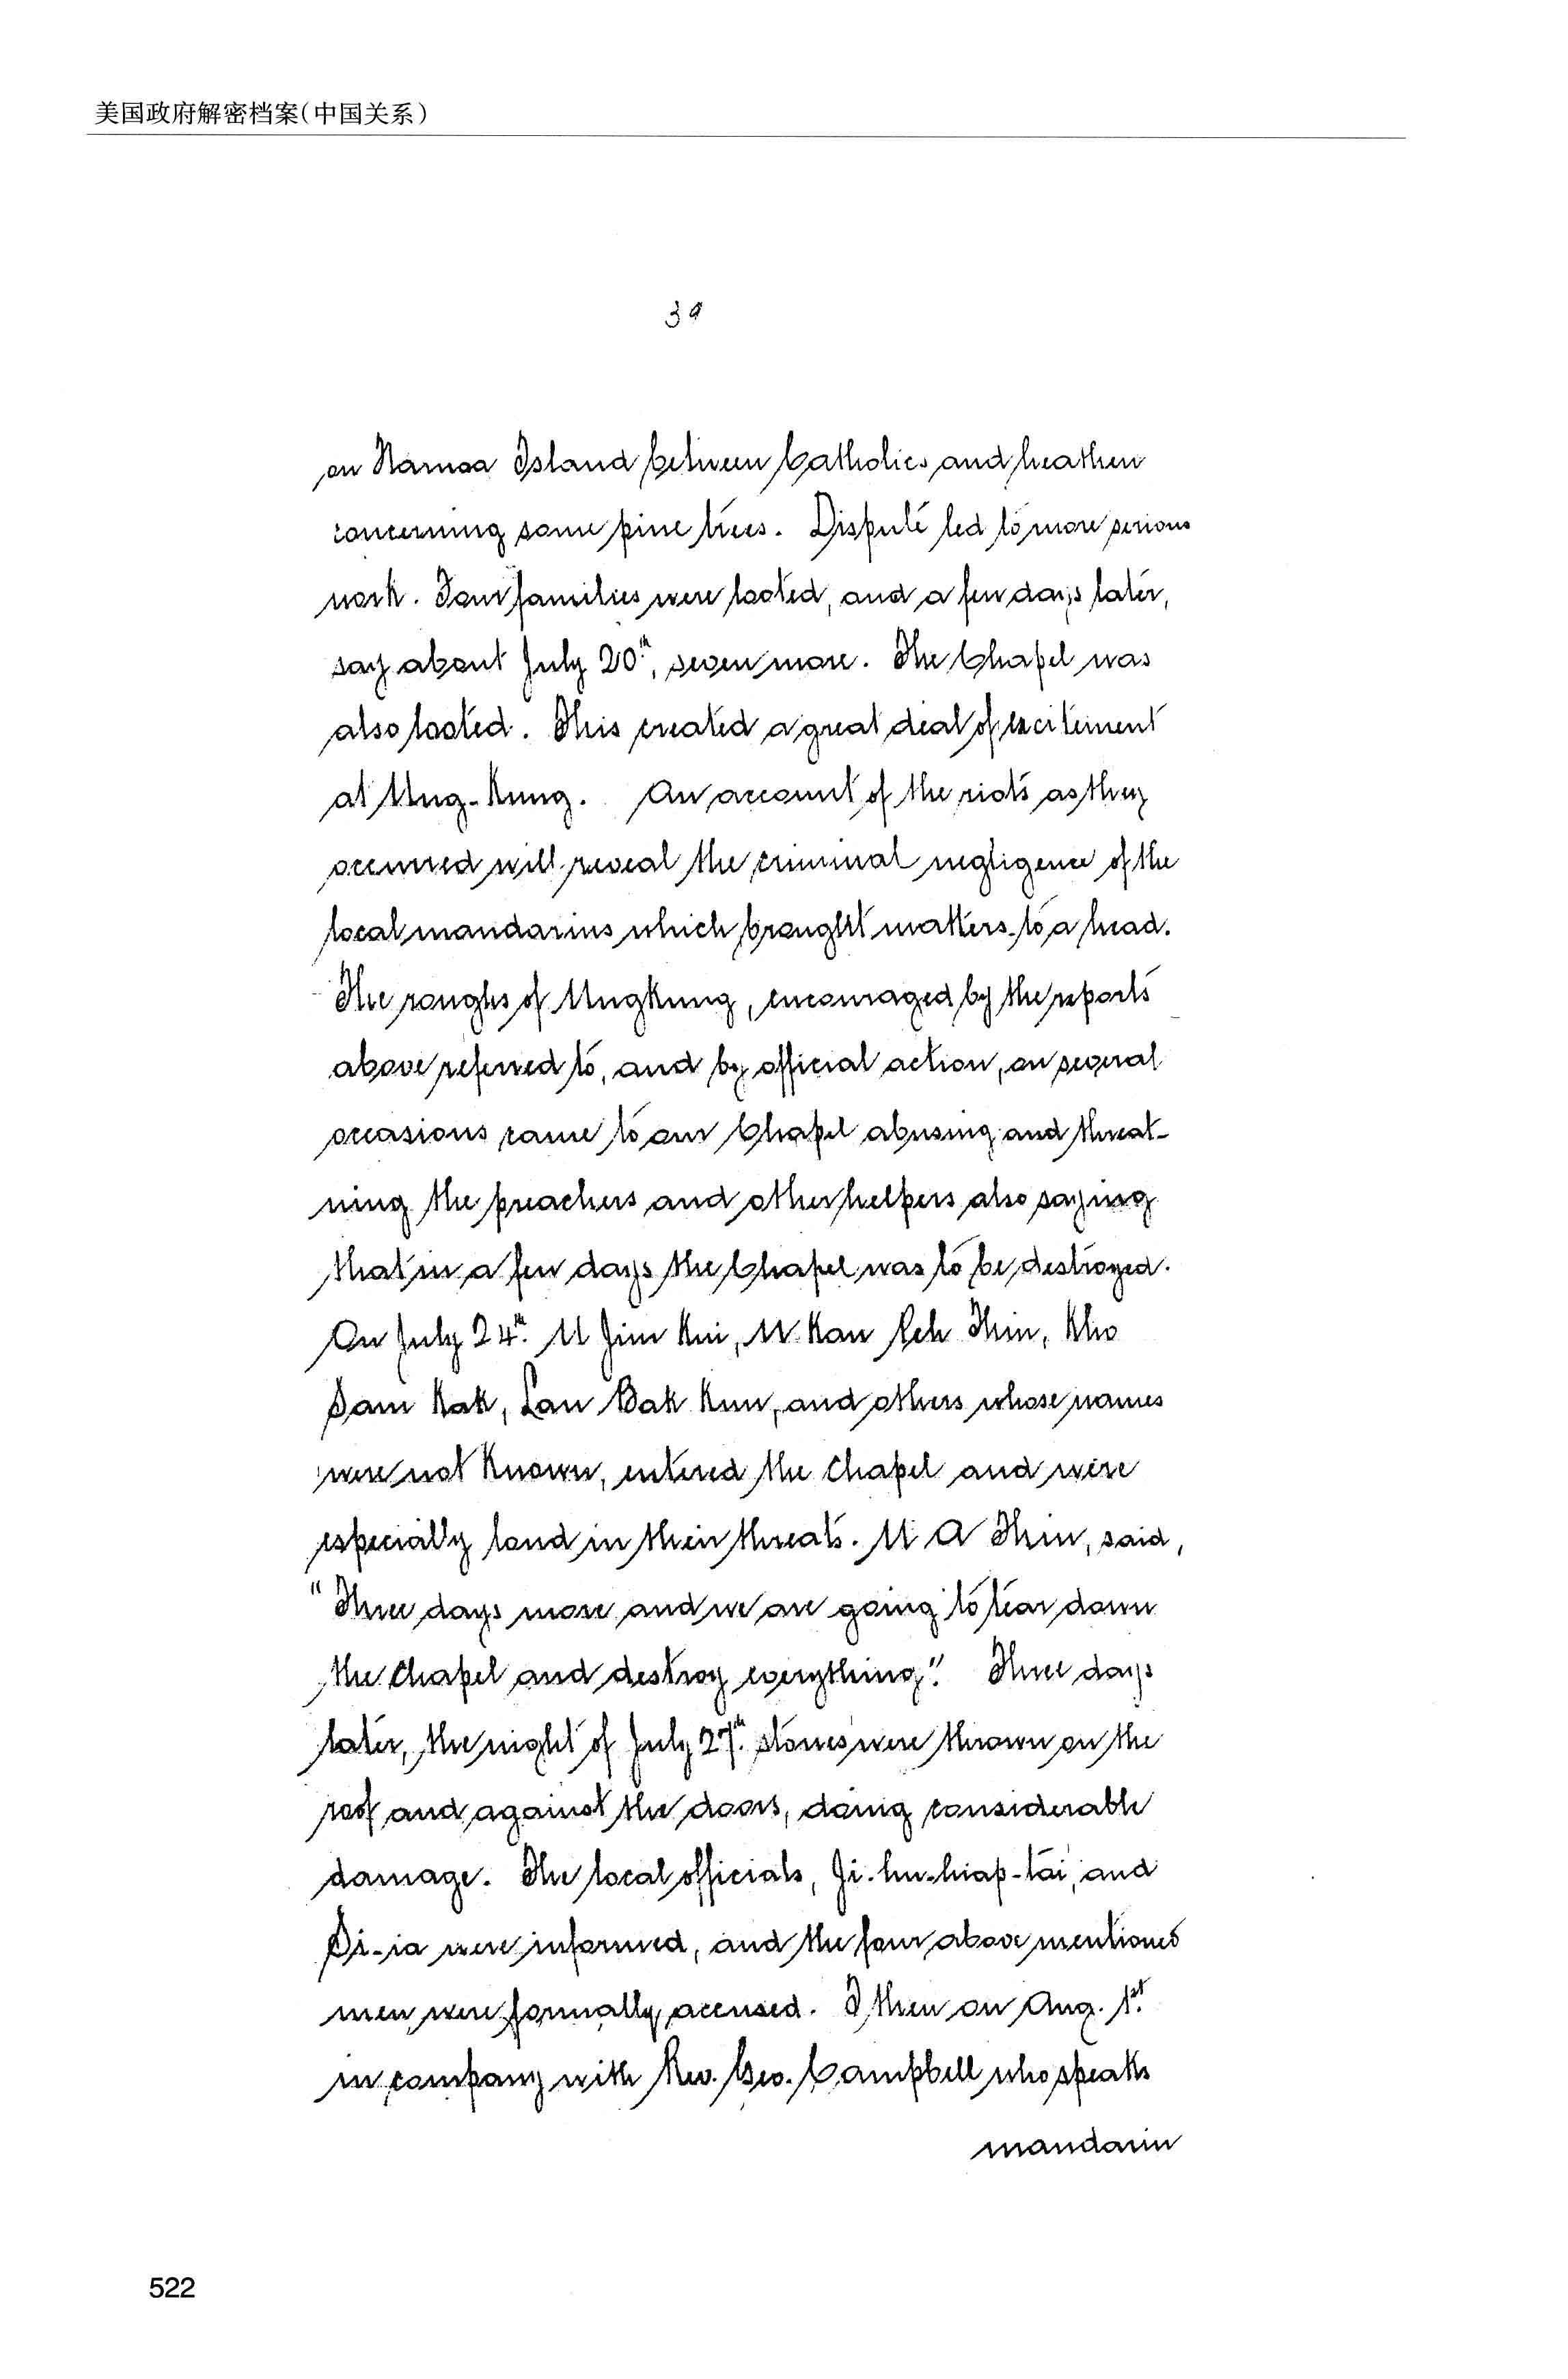 美国政府解密档案(中国关系)
39
on Namoa Island between Catholics and heathen
concerning some pine trees. Dispute led to more serious
work. Four families were looted, and a few days later,
say about July 20th, seven more. The Chapel was
also looted. This created a great deal of excitement
at Ung-Kung. An account of the riots as they
occurred will reveal the criminal negligence of the
local mandarins which brought matters to a head.
The roughs of Ungkung, encouraged by the reports
above referred to, and by official action, on several
occasions came to our Chapel abusing and threat-
ning the preachers and other helpers also saying
that in a few days the Chapel was to be destroyed.
On July 24th. U Jim Kui, U Kau Peh Thin, Kho
Sam Kak, Lau Bak Kun, and others whose names
were not known, entered the Chapel and were
especially loud in their threats. U A Thin, said,
"Three days more and we are going to tear down
the Chapel and destroy everything." Three days
later, the night of July 27th. stones were thrown on the
roof and against the doors, doing considerable
damage. The local officials, Ji-hu-hiap-tai, and
Si-ia were informed, and the four above mentioned
men were formally accused. I then on Aug. 1st.
in company with Rev. Geo. Campbell who speaks
mandarin
522